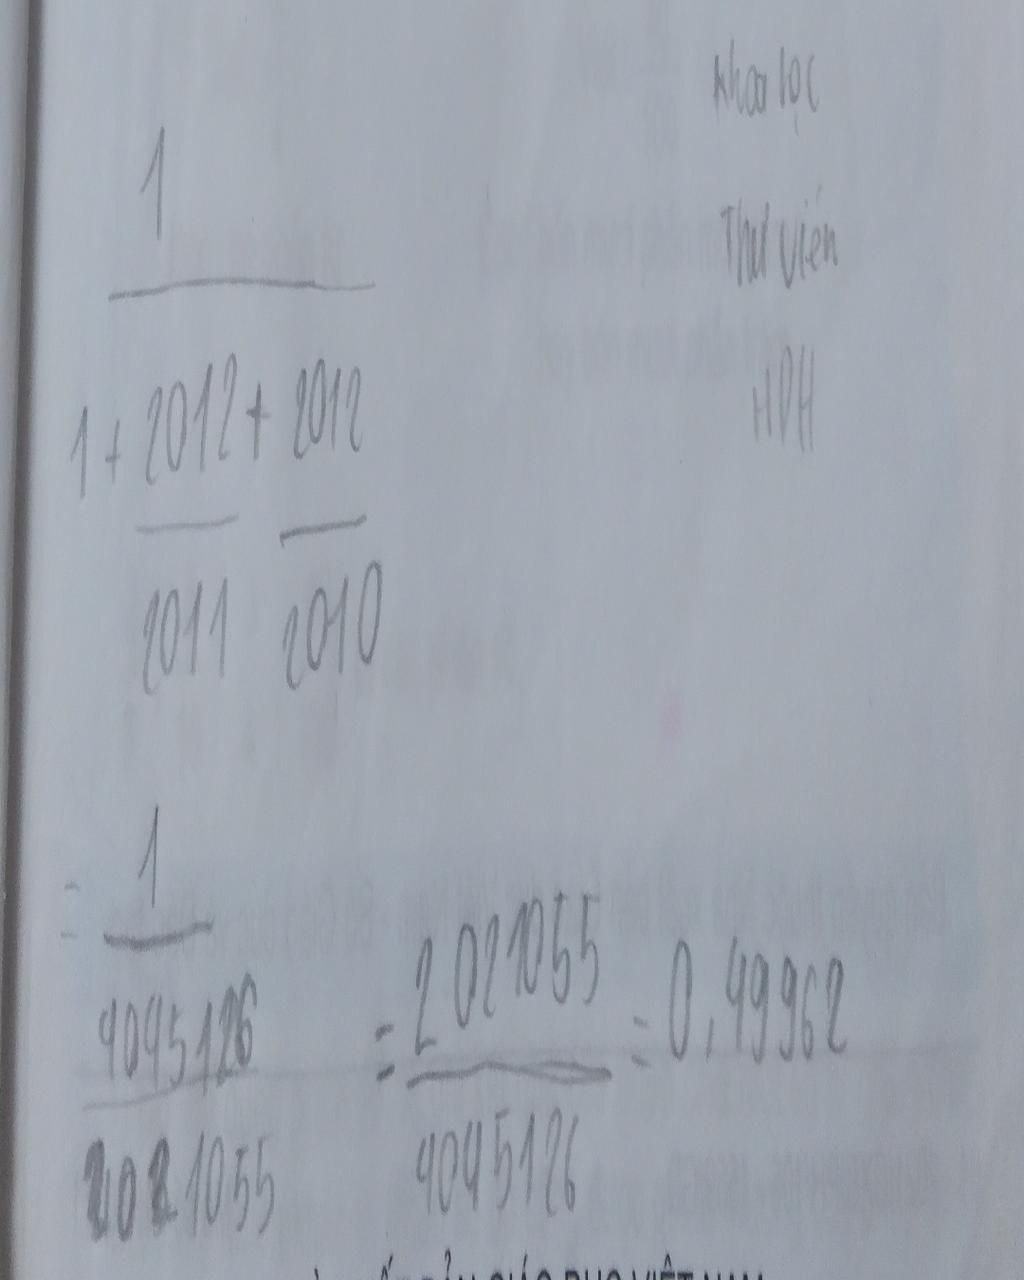 Khoa lọc
Thư viện
HDH
1
1 + 2012 + 2012
2011 2010
= 1
4045126
2021055
= 2021055
4045126
= 0,49962